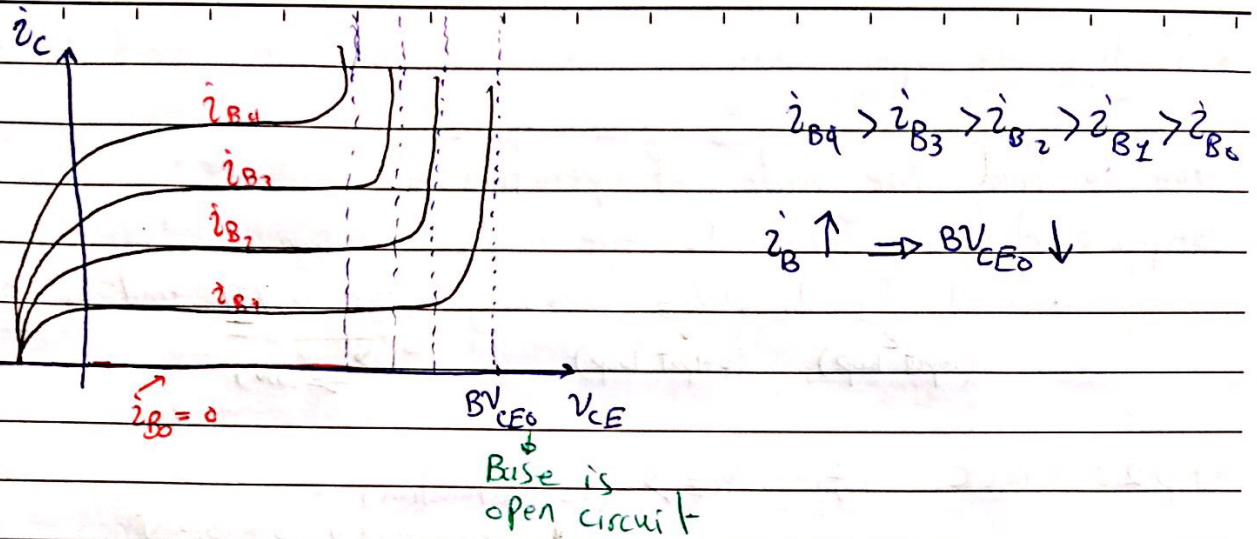 i_C
i_B4
i_B3
i_B2
i_B1
i_B0 = 0
BV_CEO
v_CE
Base is
open circuit
i_B4 > i_B3 > i_B2 > i_B1 > i_B0
i_B ↑ ⇒ BV_CEO ↓